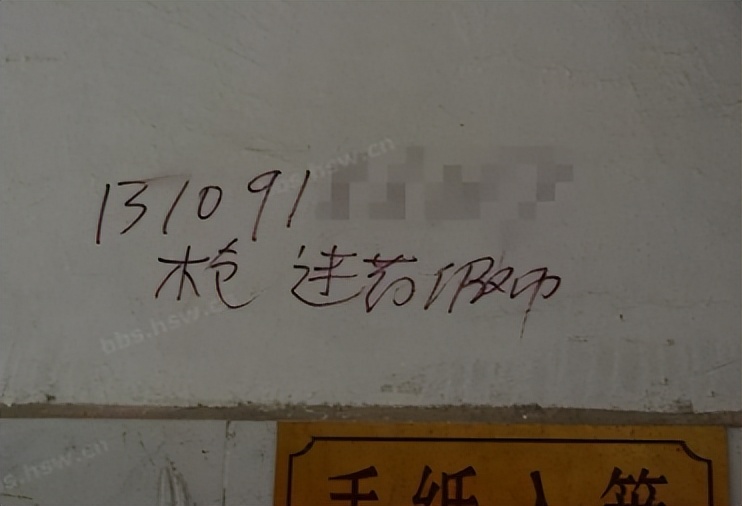 bbs.hsw.cn
131091
枪 迷药假币
bbs.hsw.cn
bbs.hsw.cn
手纸入篓